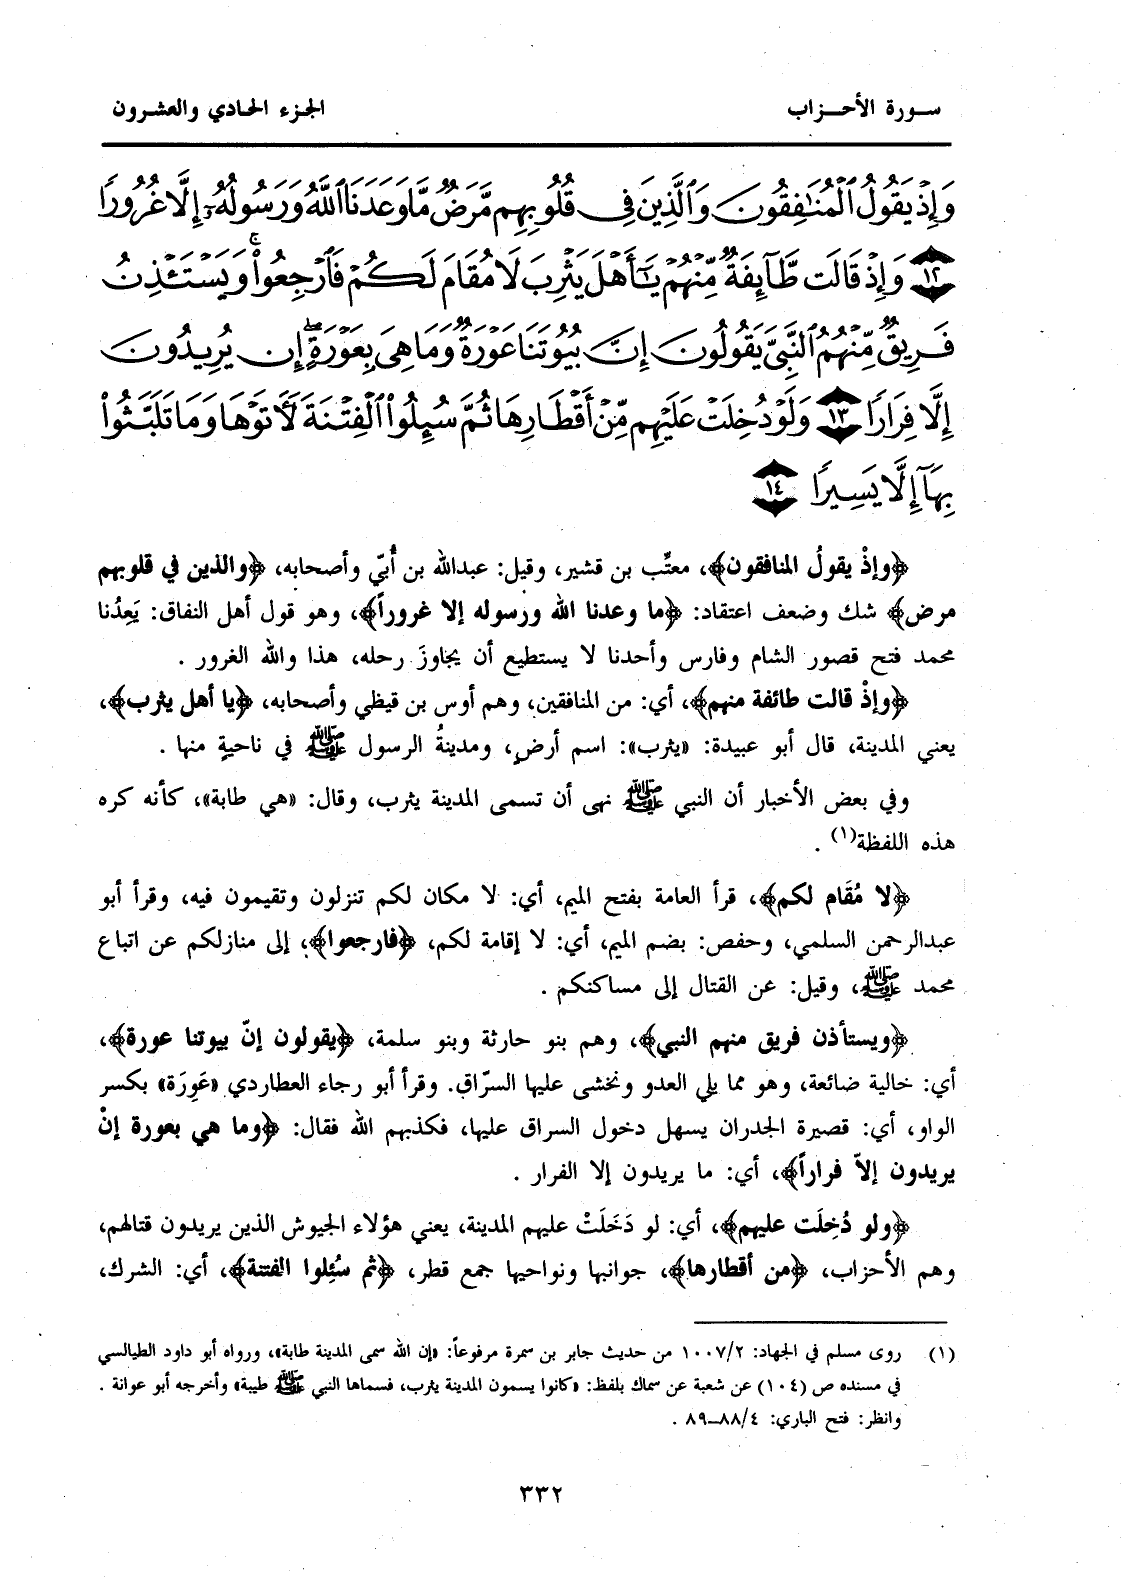 سورة الأحزاب
الجزء الحادي والعشرون
وَإِذْ يَقُولُ ٱلْمُنَٰفِقُونَ وَٱلَّذِينَ فِى قُلُوبِهِم مَّرَضٌ مَّا وَعَدَنَا ٱللَّهُ وَرَسُولُهُۥٓ إِلَّا غُرُورًا
﴿١٢﴾ وَإِذْ قَالَت طَّآئِفَةٌ مِّنْهُمْ يَٰٓأَهْلَ يَثْرِبَ لَا مُقَامَ لَكُمْ فَٱرْجِعُوا۟ۚ وَيَسْتَـْٔذِنُ
فَرِيقٌ مِّنْهُمُ ٱلنَّبِىَّ يَقُولُونَ إِنَّ بُيُوتَنَا عَوْرَةٌ وَمَا هِىَ بِعَوْرَةٍۖ إِن يُرِيدُونَ
إِلَّا فِرَارًا ﴿١٣﴾ وَلَوْ دُخِلَتْ عَلَيْهِم مِّنْ أَقْطَارِهَا ثُمَّ سُئِلُوا۟ ٱلْفِتْنَةَ لَـَٔاتَوْهَا وَمَا تَلَبَّثُوا۟
بِهَآ إِلَّا يَسِيرًا ﴿١٤﴾
﴿وإذْ يقولُ المنافقون﴾، معتِّب بن قشير، وقيل: عبدالله بن أُبيّ وأصحابه، ﴿والذين في قلوبهم
مرض﴾ شك وضعف اعتقاد: ﴿ما وعدنا الله ورسوله إلا غروراً﴾، وهو قول أهل النفاق: يَعِدُنا
محمد فتح قصور الشام وفارس وأحدنا لا يستطيع أن يجاوزَ رحله، هذا والله الغرور .
﴿وإذْ قالت طائفة منهم﴾، أي: من المنافقين، وهم أوس بن قيظي وأصحابه، ﴿يا أهل يثرب﴾،
يعني المدينة، قال أبو عبيدة: «يثرب»: اسم أرضٍ، ومدينةُ الرسول ﷺ في ناحيةٍ منها .
وفي بعض الأخبار أن النبي ﷺ نهى أن تسمى المدينة يثرب، وقال: «هي طابة»، كأنه كره
هذه اللفظة(١) .
﴿لا مُقَام لكم﴾، قرأ العامة بفتح الميم، أي: لا مكان لكم تنزلون وتقيمون فيه، وقرأ أبو
عبدالرحمن السلمي، وحفص: بضم الميم، أي: لا إقامة لكم، ﴿فارجعوا﴾، إلى منازلكم عن اتباع
محمد ﷺ، وقيل: عن القتال إلى مساكنكم .
﴿ويستأذن فريق منهم النبي﴾، وهم بنو حارثة وبنو سلمة، ﴿يقولون إنّ بيوتنا عورة﴾،
أي: خالية ضائعة، وهو مما يلي العدو ونخشى عليها السرّاق. وقرأ أبو رجاء العطاردي «عَوِرَة» بكسر
الواو، أي: قصيرة الجدران يسهل دخول السراق عليها، فكذبهم الله فقال: ﴿وما هي بعورة إنْ
يريدون إلاّ فراراً﴾، أي: ما يريدون إلا الفرار .
﴿ولو دُخِلَت عليهم﴾، أي: لو دَخَلَتْ عليهم المدينة، يعني هؤلاء الجيوش الذين يريدون قتالهم،
وهم الأحزاب، ﴿من أقطارها﴾، جوانبها ونواحيها جمع قطر، ﴿ثم سُئِلوا الفتنة﴾، أي: الشرك،
(١) روى مسلم في الجهاد: ١٠٠٧/٢ من حديث جابر بن سمرة مرفوعاً: «إن الله سمى المدينة طابة»، ورواه أبو داود الطيالسي
في مسنده ص (١٠٤) عن شعبة عن سماك بلفظ: «كانوا يسمون المدينة يثرب، فسماها النبي ﷺ طيبة» وأخرجه أبو عوانة .
وانظر: فتح الباري: ٨٨/٤ـ٨٩ .
٣٣٢